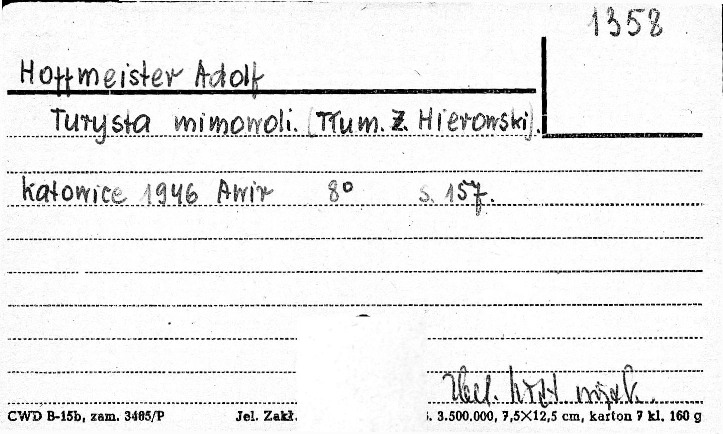 1358
Hoffmeister Adolf
Turysta mimowoli. (Tłum. Z. Hierowski).
Katowice 1946 Awir 8° s. 157.
CWD B-15b, zam. 3485/P Jel. Zakł. 3.500.000, 7,5×12,5 cm, karton 7 kl. 160 g